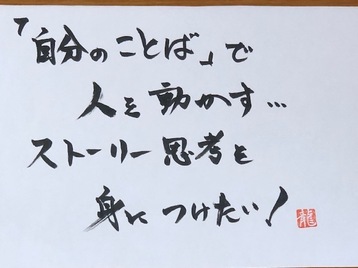 「自分のことば」で
人を動かす…
ストーリー思考を
身につけたい！
龍